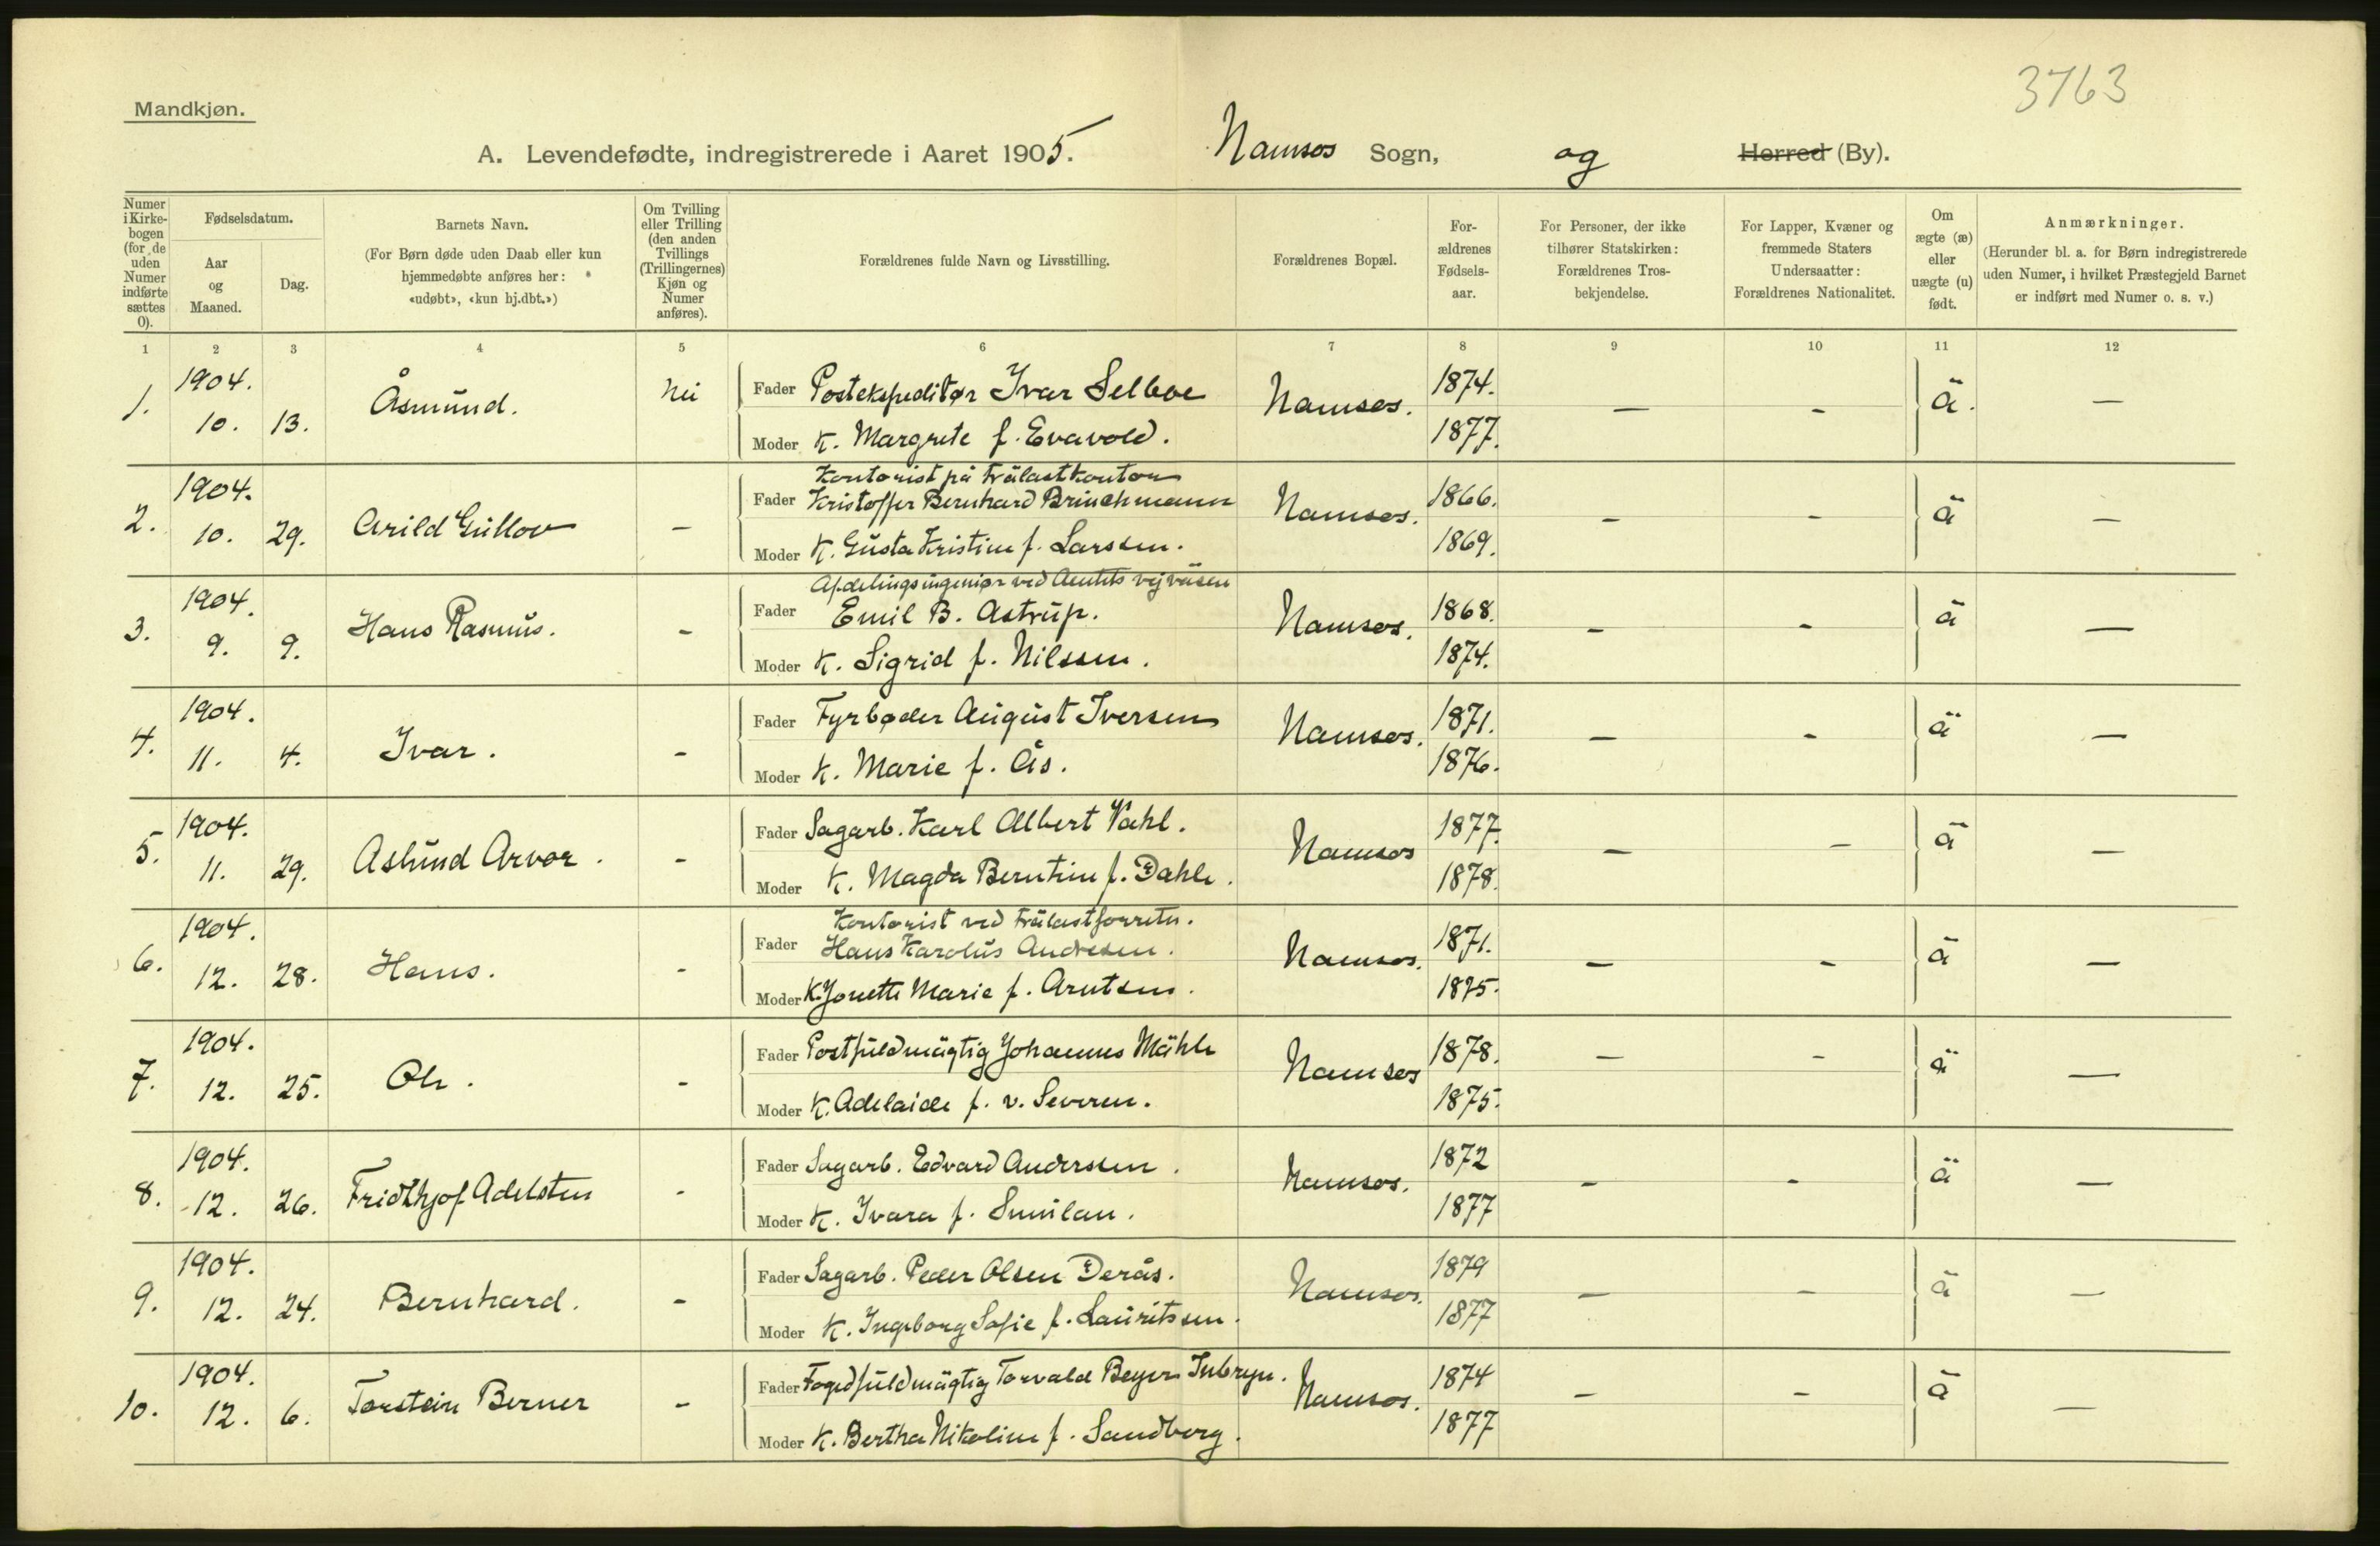 3763
Mandkjøn.
A. Levendefødte, indregistrerede i Aaret 1905. Namsos Sogn, og Herred (By).
Numer i Kirkebogen (for de uden Numer indførte sættes 0). Fødselsdatum. Aar og Maaned. Dag. Barnets Navn. (For Børn døde uden Daab eller kun hjemmedøbte anføres her: «udøbt», «kun hj.dbt.») Om Tvilling eller Trilling (den anden Tvillings (Trillingernes) Kjøn og Numer anføres). Forældrenes fulde Navn og Livsstilling. Forældrenes Bopæl. Forældrenes Fødselsaar. For Personer, der ikke tilhører Statskirken: Forældrenes Trosbekjendelse. For Lapper, Kvæner og fremmede Staters Undersaatter: Forældrenes Nationalitet. Om ægte (æ) eller uægte (u) født. Anmærkninger. (Herunder bl. a. for Børn indregistrerede uden Numer, i hvilket Præstegjeld Barnet er indført med Numer o. s. v.)
1 2 3 4 5 6 7 8 9 10 11 12
1. 1904. 10. 13. Åsmund. nei Fader Postekspeditør Ivar Selboe Namsos. 1874. — - ä. —
Moder K. Margrete f. Evavold. 1877.
2. 1904. 10. 29. Arild Gullov - Kontorist på trälastkontor
Fader Kristoffer Bernhard Brinchmann Namsos. 1866. - - ä —
Moder K. Gusta Kristine f. Larssen. 1869.
3. 1904. 9. 9. Hans Rasmus. - Afdelingsingeniør ved Amtets vejväsen
Fader Emil B. Astrup. Namsos. 1868. - - ä —
Moder K. Sigrid f. Nilssen. 1874.
4. 1904. 11. 4. Ivar. - Fader Fyrbøder August Iversen Namsos. 1871. — - ä —
Moder K. Marie f. Ås. 1876.
5. 1904. 11. 29. Aslund Arvor. - Fader Sagarb. Karl Albert Vahl. Namsos 1877. — - ä —
Moder K. Magda Berntine f. Dahle. 1878.
6. 1904. 12. 28. Hans. - Kontorist ved trälastforretn.
Fader Hans Karolus Andresen. Namsos. 1871. — - ä —
Moder K. Jonette Marie f. Arntsen. 1875.
7. 1904. 12. 25. Ole. - Fader Postfuldmägtig Johannes Mähle Namsos 1878. — - ä —
Moder K. Adelaide f. v. Severen. 1875.
8. 1904. 12. 26. Fridthjof Adelsten - Fader Sagarb. Edvard Anderssen. Namsos. 1872 - - ä —
Moder K. Ivara f. Smulan. 1877
9. 1904. 12. 24. Bernhard. - Fader Sagarb. Peder Olsen Derås. Namsos. 1879 — - ä —
Moder K. Ingeborg Sofie f. Lauritssen. 1877
10. 1904. 12. 6. Torstein Berner - Fader Fogedfuldmägtig Torvald Beyer Inbryn. Namsos. 1874 - - ä —
Moder K. Bertha Nikoline f. Sandberg. 1877